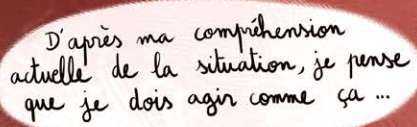 D'après ma compréhension
actuelle de la situation, je pense
que je dois agir comme ça ...